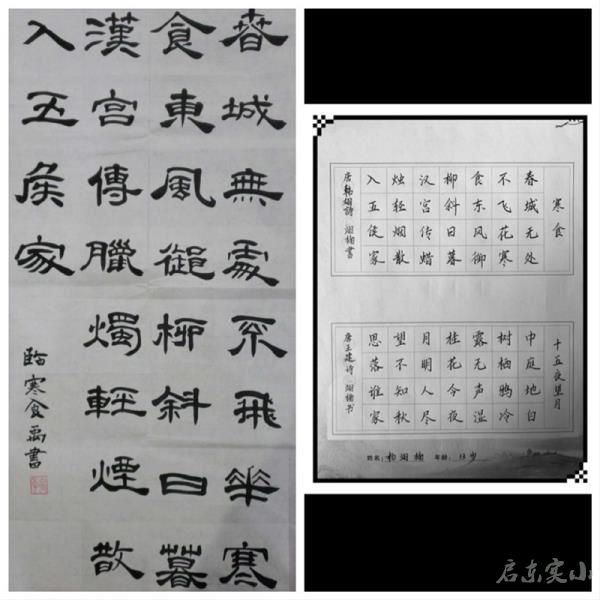 春城無處不飛華寒
食東風御柳斜日暮
漢宮傳臘燭輕煙散
入五侯家
臨寒食禹書
寒食
春城无处
不飞花寒
食东风御
柳斜日暮
汉宫传蜡
烛轻烟散
入五侯家
唐韩翃詩 書
十五夜望月
中庭地白
树栖鸦冷
露无声湿
桂花今夜
月明人尽
望不知秋
思落谁家
唐王建诗 书
姓名： 年龄：13岁
启东实小